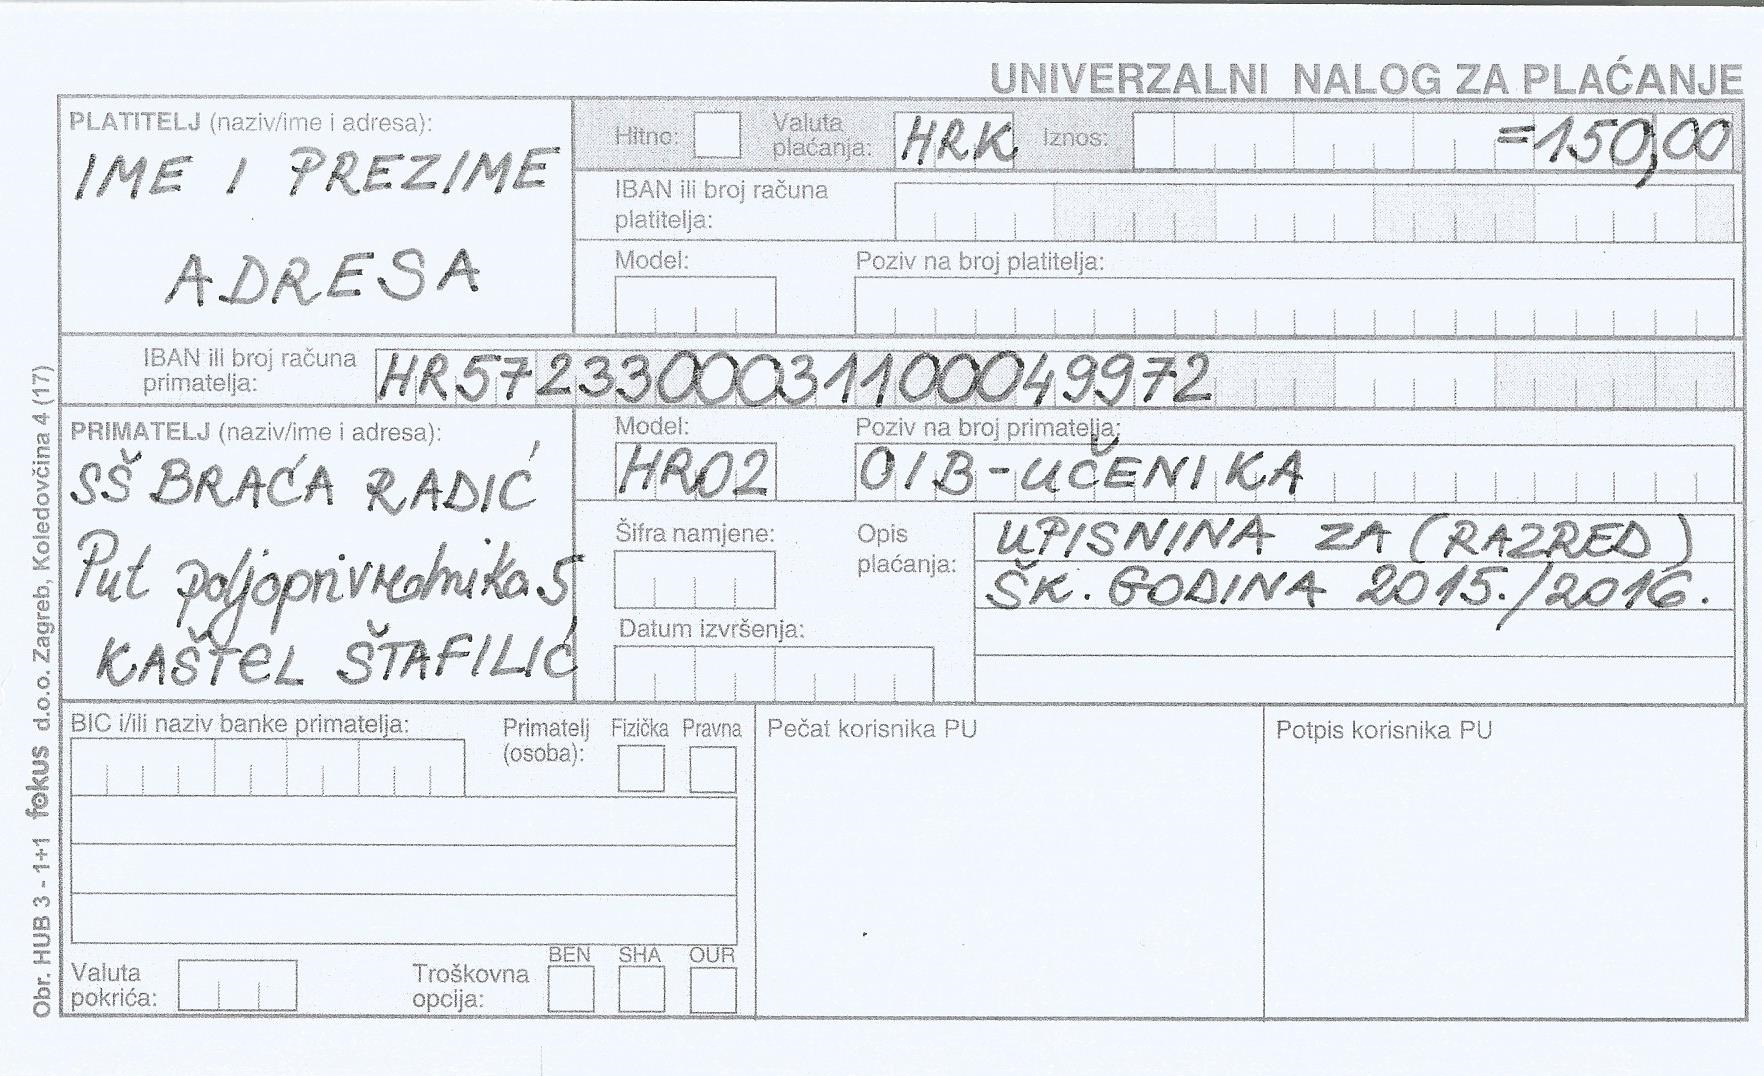 UNIVERZALNI NALOG ZA PLAĆANJE
PLATITELJ (naziv/ime i adresa):
IME I PREZIME
ADRESA
Hitno:
Valuta plaćanja:
HRK
Iznos:
=150,00
IBAN ili broj računa
platitelja:
Model:
Poziv na broj platitelja:
IBAN ili broj računa
primatelja:
HR5723300031100049972
PRIMATELJ (naziv/ime i adresa):
SŠ BRAĆA RADIĆ
Put poljoprivrednika 5
KAŠTEL ŠTAFILIĆ
Model:
HR02
Poziv na broj primatelja:
OIB-UČENIKA
Šifra namjene:
Opis
plaćanja:
UPISNINA ZA (RAZRED)
ŠK. GODINA 2015./2016.
Datum izvršenja:
BIC i/ili naziv banke primatelja:
Primatelj
(osoba):
Fizička
Pravna
Pečat korisnika PU
Potpis korisnika PU
Valuta
pokrića:
Troškovna
opcija:
BEN
SHA
OUR
Obr. HUB 3 - 1+1 fokus d.o.o. Zagreb, Koledovčina 4 (17)